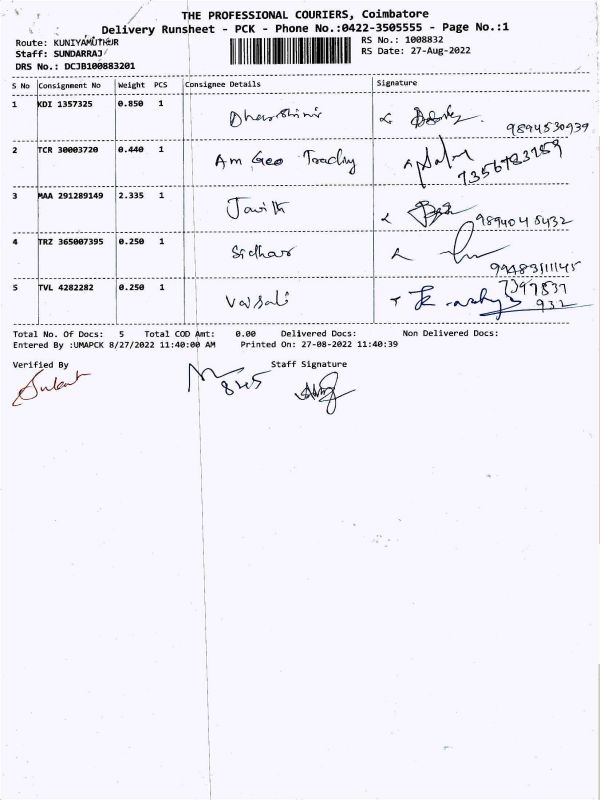 THE PROFESSIONAL COURIERS, Coimbatore
Delivery Runsheet - PCK - Phone No.:0422-3505555 - Page No.:1
Route: KUNIYAMUTHUR RS No.: 1008832
Staff: SUNDARRAJ RS Date: 27-Aug-2022
DRS No.: DCJB100883201
S No Consignment No Weight PCS Consignee Details Signature
1 KDI 1357325 0.850 1 Dharshini 9894530939
2 TCR 30003720 0.440 1 Am Geo Trading 7356783259
3 MAA 291289149 2.335 1 Jawith
4 TRZ 365007395 0.250 1 Sridhar
5 TVL 4282282 0.250 1 Vaisali 7397837
932
Total No. Of Docs: 5 Total COD Amt: 0.00 Delivered Docs: Non Delivered Docs:
Entered By :UMAPCK 8/27/2022 11:40:00 AM Printed On: 27-08-2022 11:40:39
Verified By Staff Signature